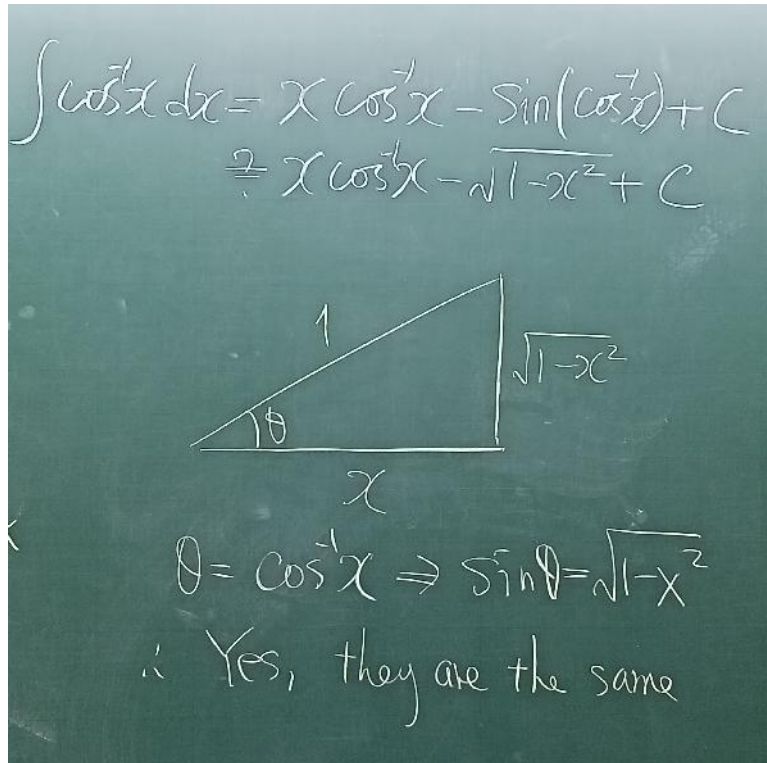 ∫cos⁻¹x dx = x cos⁻¹x − sin(cos⁻¹x) + C
≟ x cos⁻¹x − √(1−x²) + C
1
√(1−x²)
θ
x
θ = cos⁻¹x ⇒ sinθ = √(1−x²)
∴ Yes, they are the same